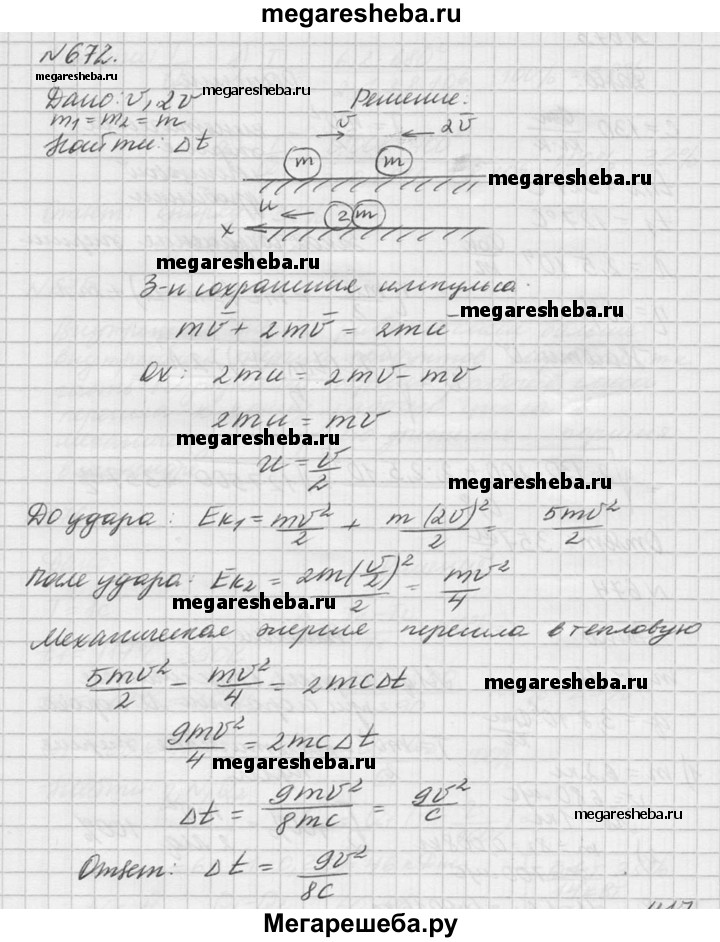 megaresheba.ru
№672.
megaresheba.ru
Дано: v, 2v megaresheba.ru Решение.
m₁ = m₂ = m
v̄ 2v̄
Найти: Δt
m m
megaresheba.ru
u 2 m
x
megaresheba.ru
З-н сохранения импульса:
megaresheba.ru
mv̄ + 2mv̄ = 2mū
Ox: 2mu = 2mv - mv
2mu = mv
megaresheba.ru
u = v/2
megaresheba.ru
До удара: Eк₁ = mv²/2 + m(2v)²/2 = 5mv²/2
После удара: Eк₂ = 2m(v/2)²/2 = mv²/4
megaresheba.ru
Механическая энергия перешла в тепловую
5mv²/2 - mv²/4 = 2mcΔt
megaresheba.ru
9mv²/4 = 2mcΔt
megaresheba.ru
Δt = 9mv²/8mc = 9v²/c
megaresheba.ru
Ответ: Δt = 9v²/8c
Мегарешеба.ру